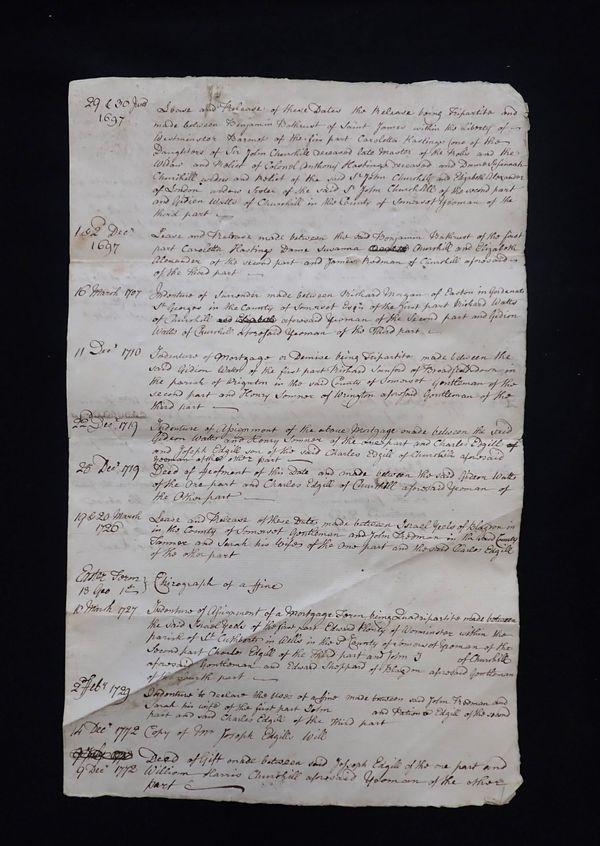 29 & 30
1697
Lease and Release of these Dates the Release being Tripartite and
made between Benjamin Bathurst of Saint James within his Liberty of
Westminster of the first part Caroletta Hastings one of the
Daughters of Sir John Churchill deceased late Master of the Rolls and the
Widow and Relict of Colonel Anthony Hastings deceased and Dame Susannah
Churchill widow and Relict of the said Sr John Churchill and Elizabeth Alexander
of London widow Sister of the said Sr John Churchill of the second part
and Gidion Watts of Churchill in the County of Somerset Yeoman of the
third part
1 & 2 Decr
1697
Lease and Release made between the said Benjamin Bathurst of the first
part Caroletta Hastings Dame Susanna Churchill and Elizabeth
Alexander of the second part and James Rodman of Churchill aforesaid
of the third part
16 March 1707
Indenture of Surrender made between Richard Morgan of Easton in Gordenal
St Georges in the County of Somerset Esqr of the first part Richard Watts
of Churchill aforesaid Yeoman of the Second part and Gidion
Watts of Churchill aforesaid Yeoman of the Third part
11 Decr 1710
Indenture of Mortgage or Demise being Tripartite made between the
said Gidion Watts of the first part Richard Sanford of in
the parish of Wrington in the said County of Somerset Gentleman of the
second part and Henry Somner of Wrington aforesaid Gentleman of the
third part
22 Decr 1719
Indenture of Assignment of the above Mortgage made between the said
Gideon Watts and Henry Somner of the one part and Charles Edgill of
and Joseph Edgill son of the said Charles Edgill of Churchill aforesaid
Yeoman of the other part
25 Decr 1719
Deed of Feofment of this Date and made between the said Gideon Watts
of the One part and Charles Edgill of Churchill aforesaid Yeoman of
the Other part
19 & 20 March
1726
Lease and Release of these Dates made between Israel Yeels of Blagdon in
in the County of Somerset Gentleman and John Redman in the said County
Tanner and Sarah his Wife of the One part and the said Charles Edgill
of the other part
Easter Term
13 Geo 1st
Chirograph of a ffine
March 1727
Indenture of Assignment of a Mortgage Term being Quadripartite made between
the said Israel Yeels of the first part Edward of Worminster within the
parish of St Cuthberts in Wells in the sd County of Somerset Yeoman of the
Second part Charles Edgill of the Third part and John of Churchill
aforesaid Gentleman and Edward Sheppard of Blagdon aforesaid Gentleman
of the fourth part
2d Feby 1729
Indenture to declare the Uses of a ffine made between said John Redman and
Sarah his wife of the first part John and Edgill of the second
part and said Charles Edgill of the Third part
4 Decr 1772
Copy of Mr Joseph Edgills Will
9 Decr 1772
Deed of Gift made between said Joseph Edgill of the one part and
William Harris Churchill aforesaid Yeoman of the other
part